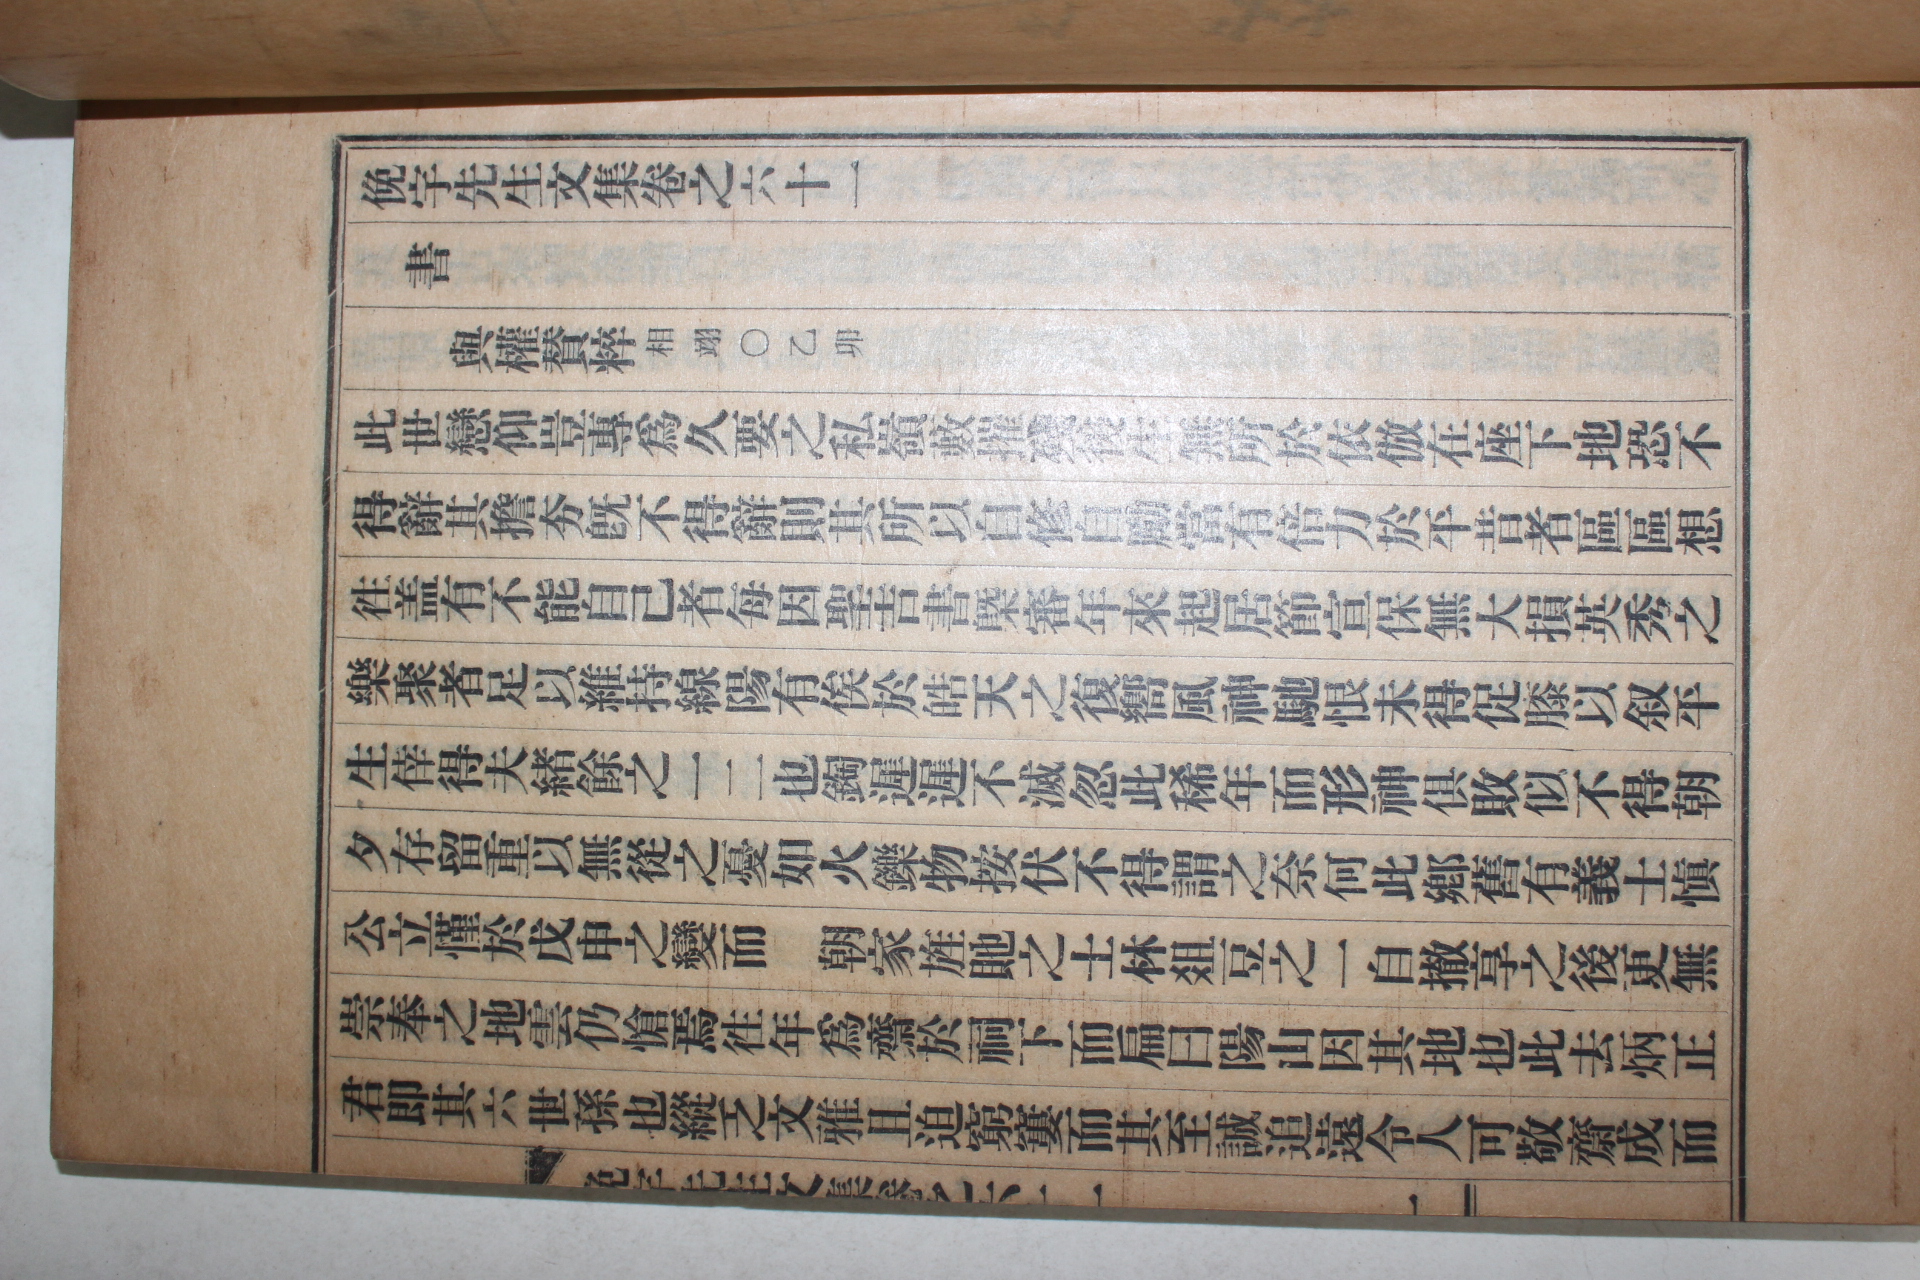 俛宇先生文集卷之六十一
書
與權贊粹相翊○乙卯
此世戀仰豈專爲久要之私嶺數摧後生無所於依倣在座下地恐不
得辭其擔夯旣不得辭則其所以自修自勵當有倍力於平昔者區區想
徃盖有不能自已者每因聖吉書槩審年來起居節宣保無大損英秀之
樂聚者足以維持線陽有俟於皓天之復嚮風神馳恨未得促膝以叙平
生倖得夫緖餘之一二也鋾遲遲不滅忽此稀年而形神俱敗似不得朝
夕存留重以無從之憂如火鑠物按伏不得謂之奈何此鄕舊有義士愼
公立慬於戊申之變而 朝家旌貤之士林俎豆之一自撤享之後更無
崇奉之地雲仍愴焉徃年爲齋於祠下而扁曰陽山因其地也此去炳正
君卽其六世孫也縱乏文雅且迫窮窶而其至誠追遠令人可敬齋成而
俛宇先生文集卷之六十一 一